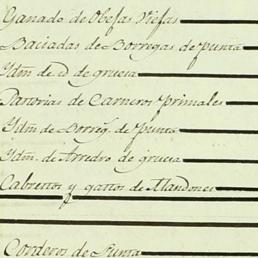 Ganado de Obejas Viejas
Baciadas de Borregas de punta
Ydm. de d de gruesa
Parorias de Carneros Primales
Ydm. de Borreg. de punta
Ydm. de Arredro de gruesa
Cabrettos y gattos de Mandones
Corderos de Punta